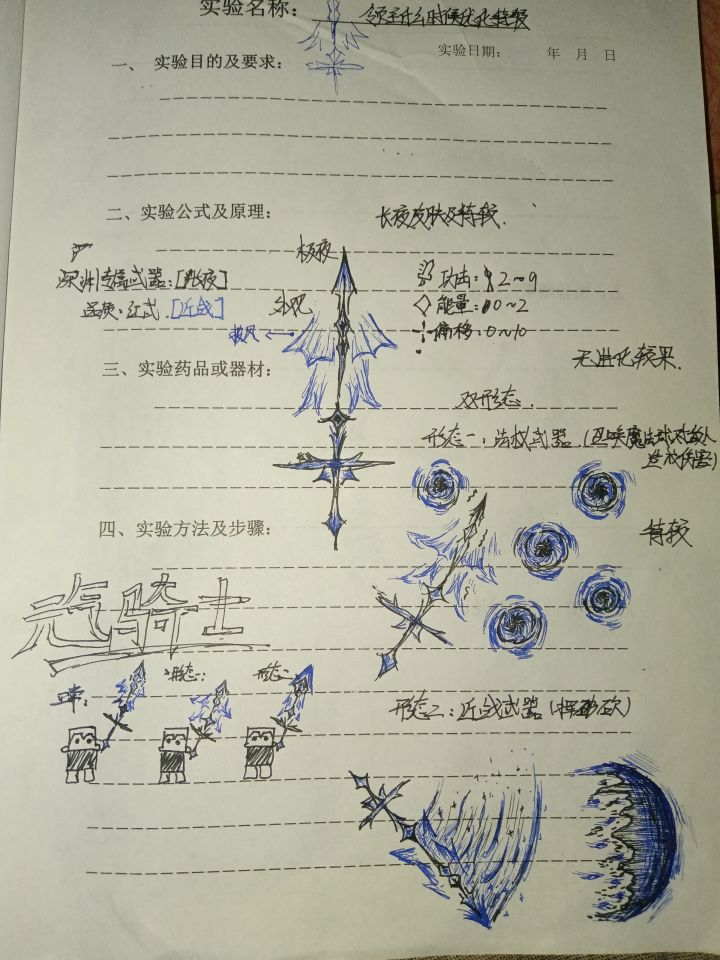 实验名称: 领主什么时候优化特效
实验日期:　　年　月　日
一、 实验目的及要求:
二、实验公式及原理:
长夜皮肤及特较.
极夜
深渊专属武器:[长夜]
外观
功击: 2~9
品质:红武.[近战]
能量:0~2
披风
偏移:0~10
三、实验药品或器材:
无进化较果.
双形态.
形态一:法杖武器.(召唤魔法球对敌人造成伤害)
四、实验方法及步骤:
特较
元气骑士
形态一:
形态二:
形态二:近战武器(挥砍)